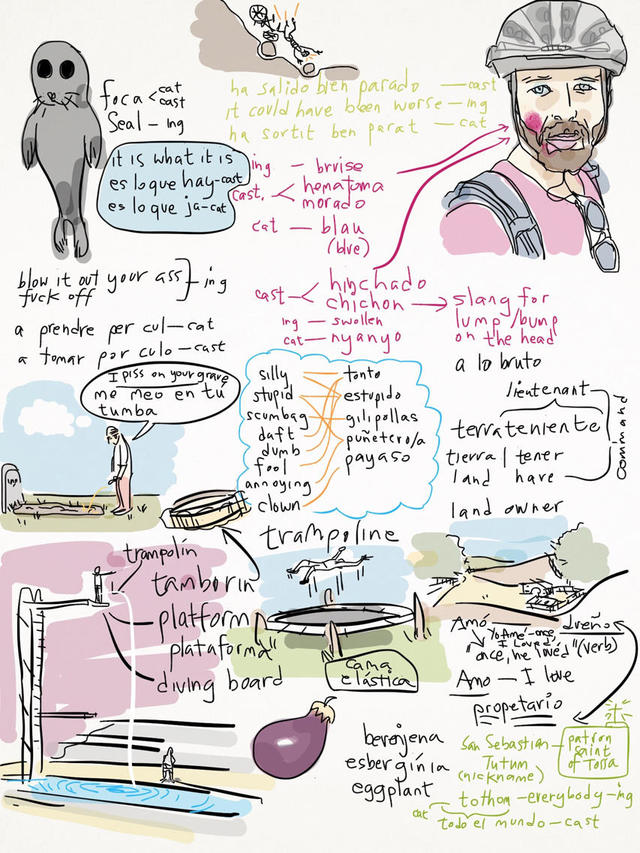 foca < cat
cast
Seal – ing
ha salido bien parado — cast
it could have been worse – ing
ha sortit ben parat – cat
it is what it is
es lo que hay-cast
es lo que ja-cat
ing – bruise
cast. < hematoma
morado
cat – blau
(blue)
blow it out your ass] – ing
fuck off
a prendre per cul – cat
a tomar por culo – cast
cast < hinchado
chichon → slang for
lump/bump
on the head
ing – swollen
cat – nyanyo
a lo bruto
I piss on your grave
me meo en tu
tumba
silly
stupid
scumbag
daft
dumb
fool
annoying
clown
tonto
estupido
gilipollas
puñetero/a
payaso
lieutenant
terrateniente
tierra | tener
land | have
Command
land owner
trampoline
trampolín
tamborin
platform
plataforma"
diving board
cama
elástica
Amó
dueño
"yo Amé-once,
I Loved"
"once, he loved" (verb)
Amo – I love
propetario
berenjena
esberginia
eggplant
San Sebastian – patron
saint
of Tossa
Tutum
(nickname)
tothom – everybody – ing
cat
todo el mundo – cast